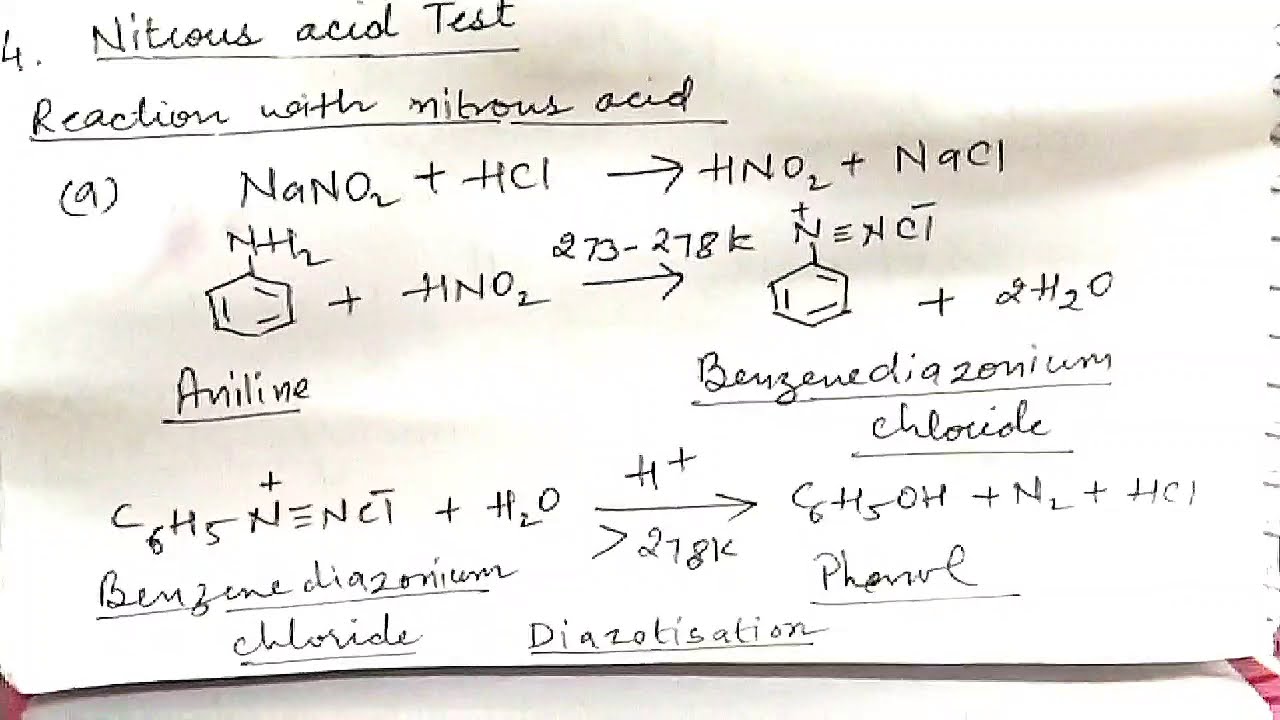 4. Nitrous acid Test
Reaction with nitrous acid
(a) NaNO₂ + HCl → HNO₂ + NaCl
NH₂ + HNO₂ 273-278K → N⁺≡NCl⁻ + 2H₂O
Aniline Benzenediazonium
chloride
C₆H₅-N⁺≡NCl⁻ + H₂O H⁺ → >278K C₆H₅OH + N₂ + HCl
Benzenediazonium Phenol
chloride Diazotisation